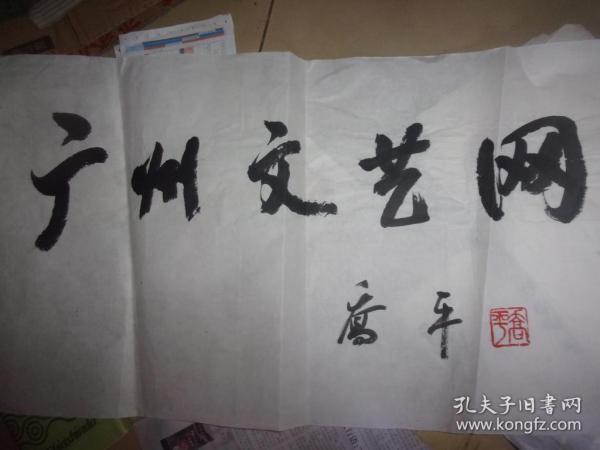 广州文艺网
乔平
乔平
孔夫子旧书网
www.kongfz.com